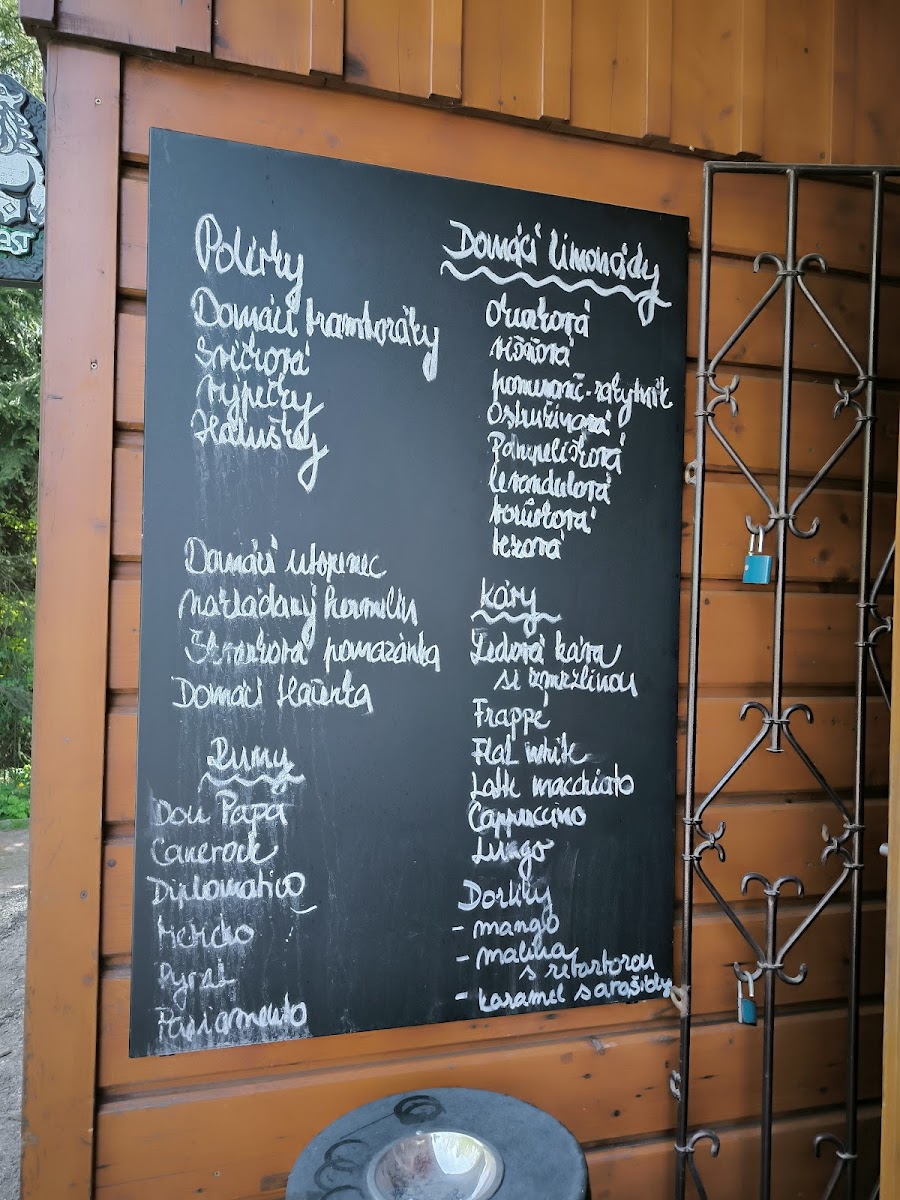 Polívky
Domácí bramboráky
Svíčková
Vypečky
Halušky
Domácí utopenec
Nakládaný hermelín
Škvarková pomazánka
Domácí tlačenka
Rumy
Don Papa
Canerock
Diplomatico
Pyrat
Domácí limonády
Okurková
višňová
pomeranč-rakytník
Ostružinová
Pampelišková
levandulová
borůvková
bezová
Kávy
Ledová káva
se zmrzlinou
Frappe
Flat white
Latte macchiato
Cappuccino
Lungo
Dortíky
- mango
- malina
s rebarborou
- karamel s arašídy